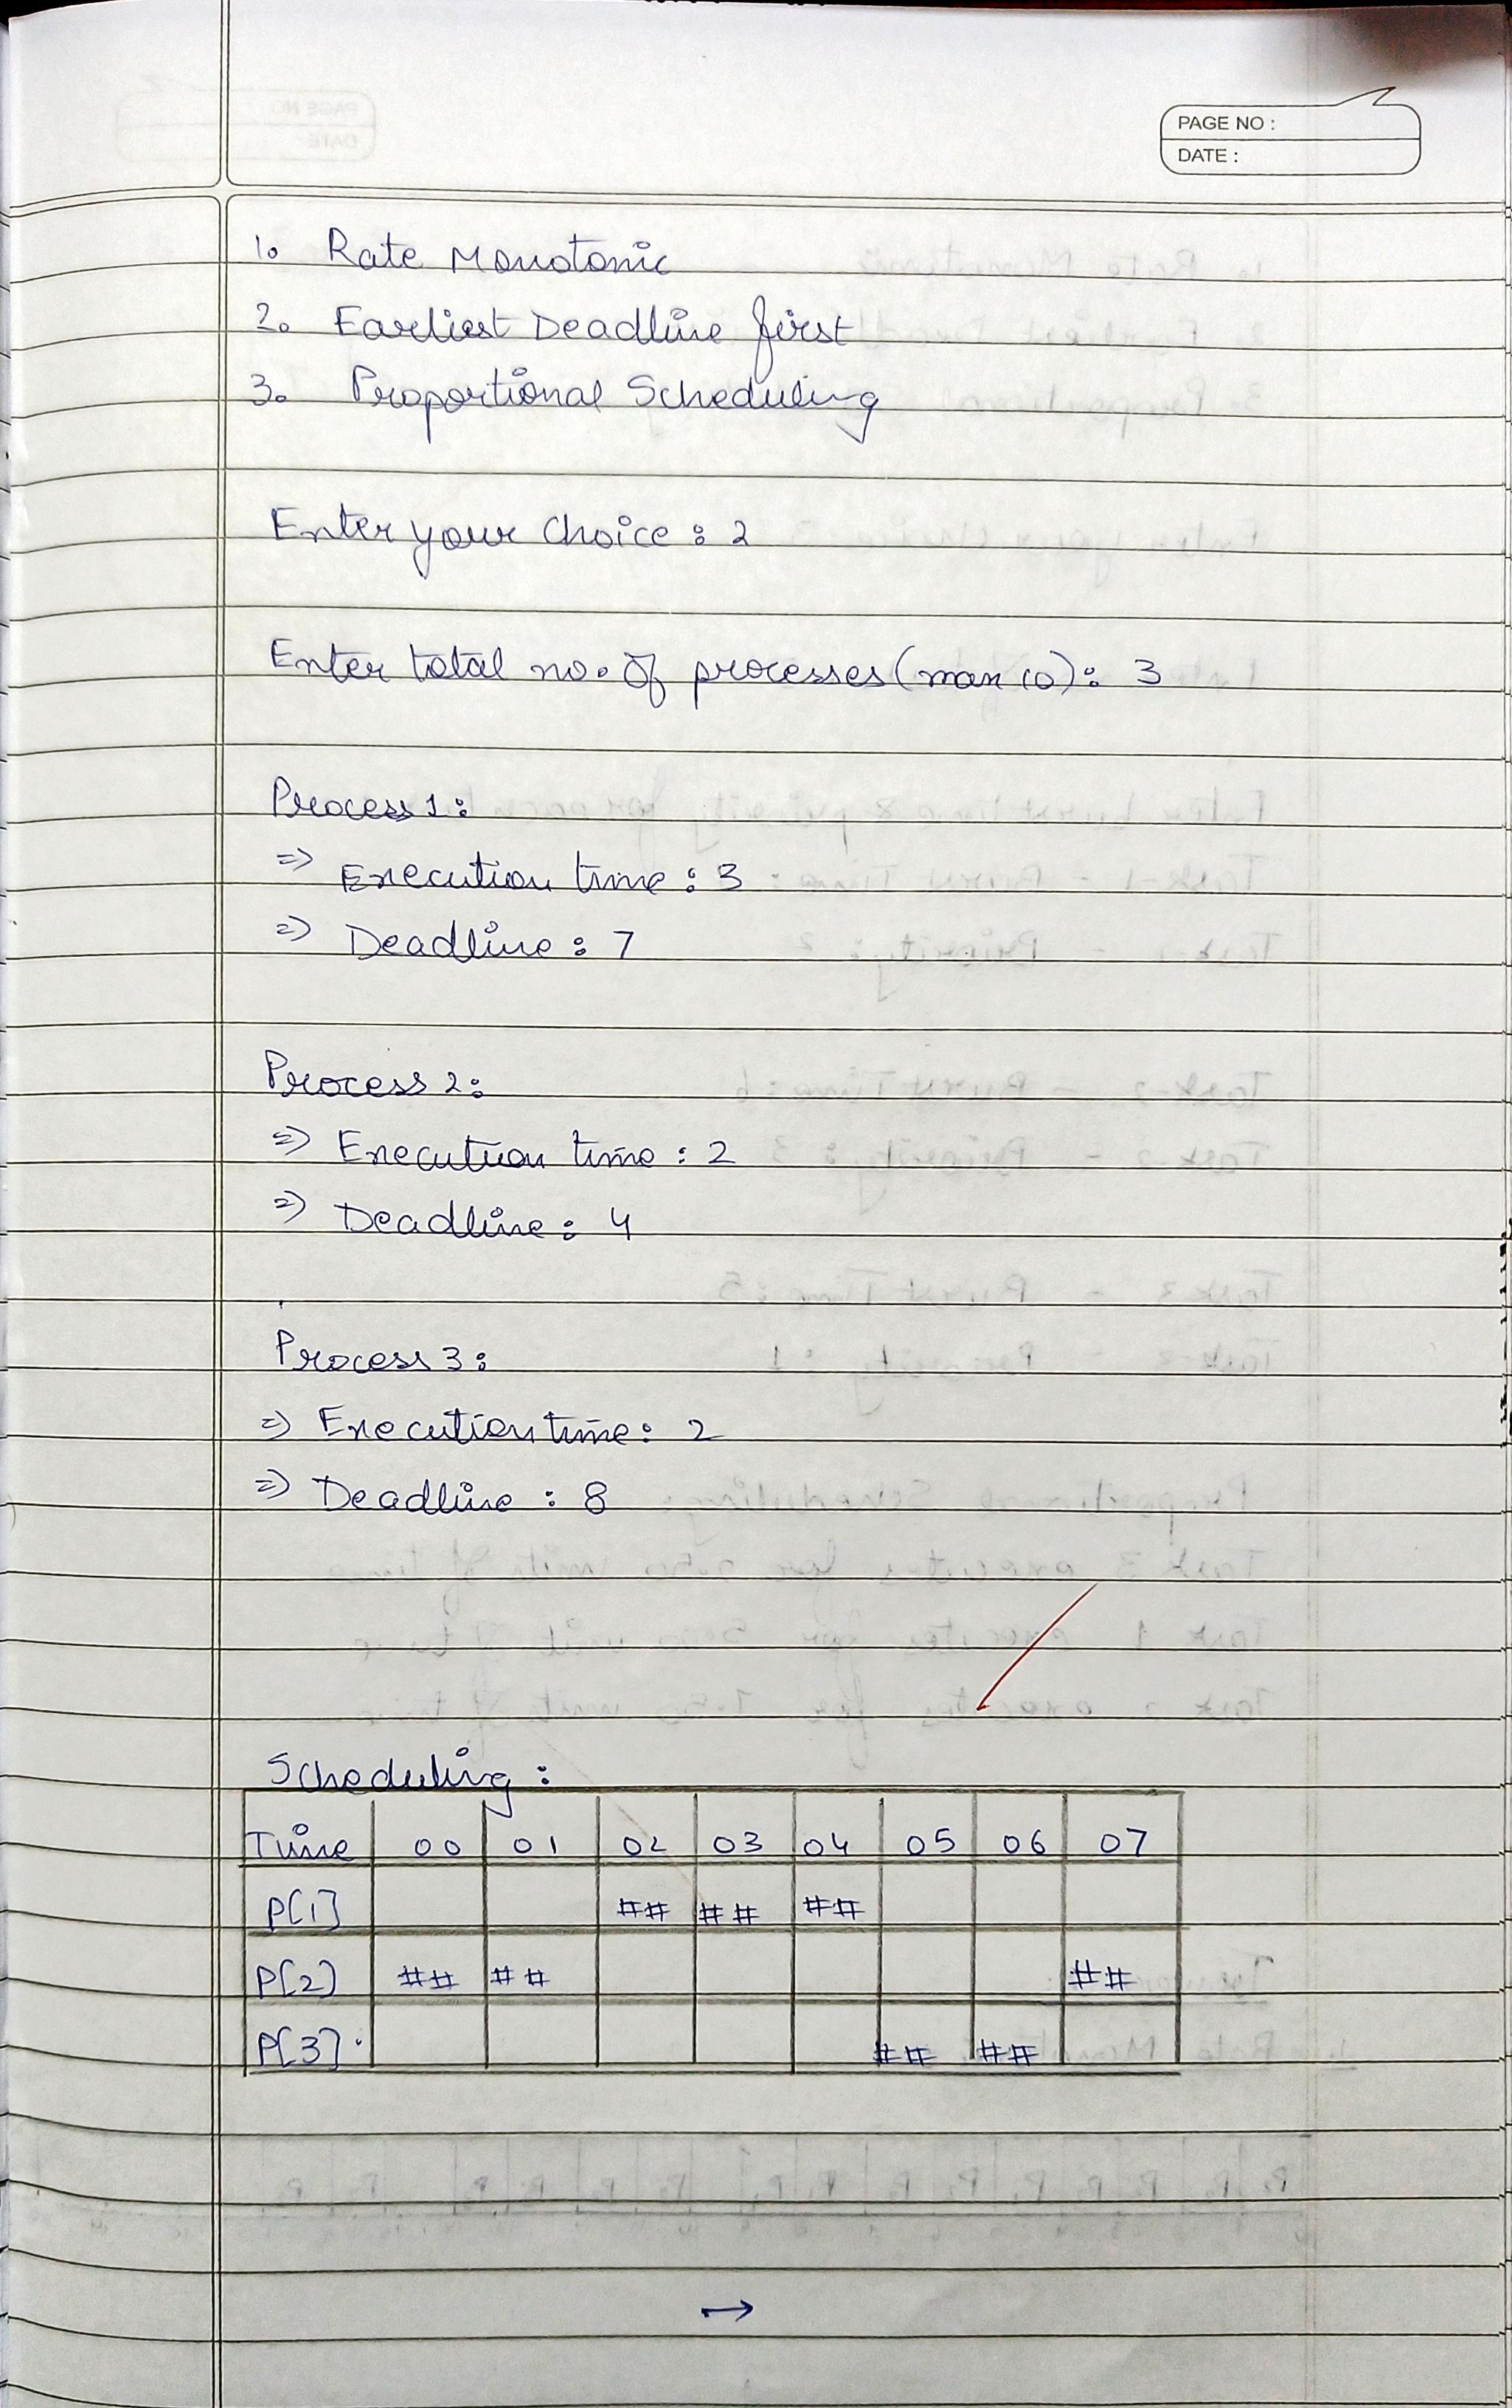 PAGE NO :
DATE :
1. Rate Monotonic
2. Earliest Deadline first
3. Proportional Scheduling
Enter your choice : 2
Enter total no. of processes (max 10): 3
Process 1:
=> Execution time : 3
=> Deadline : 7
Process 2:
=> Execution time : 2
=> Deadline : 4
Process 3:
=> Execution time : 2
=> Deadline : 8
Scheduling :
Time 00 01 02 03 04 05 06 07
P[1] ## ## ##
P[2] ## ## ##
P[3] ## ##
→